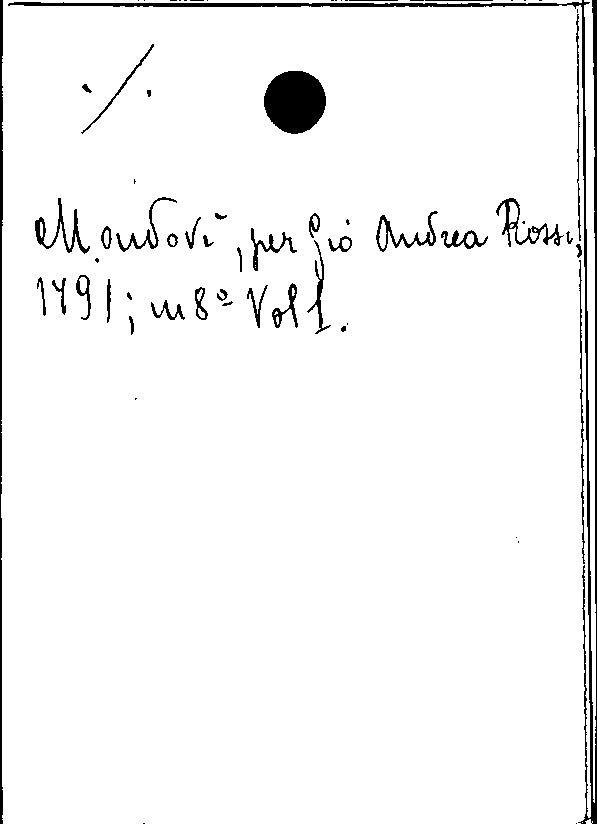 ./.
Mondovì, per Gio Andrea Rossi,
1791; in 8º Vol 1.